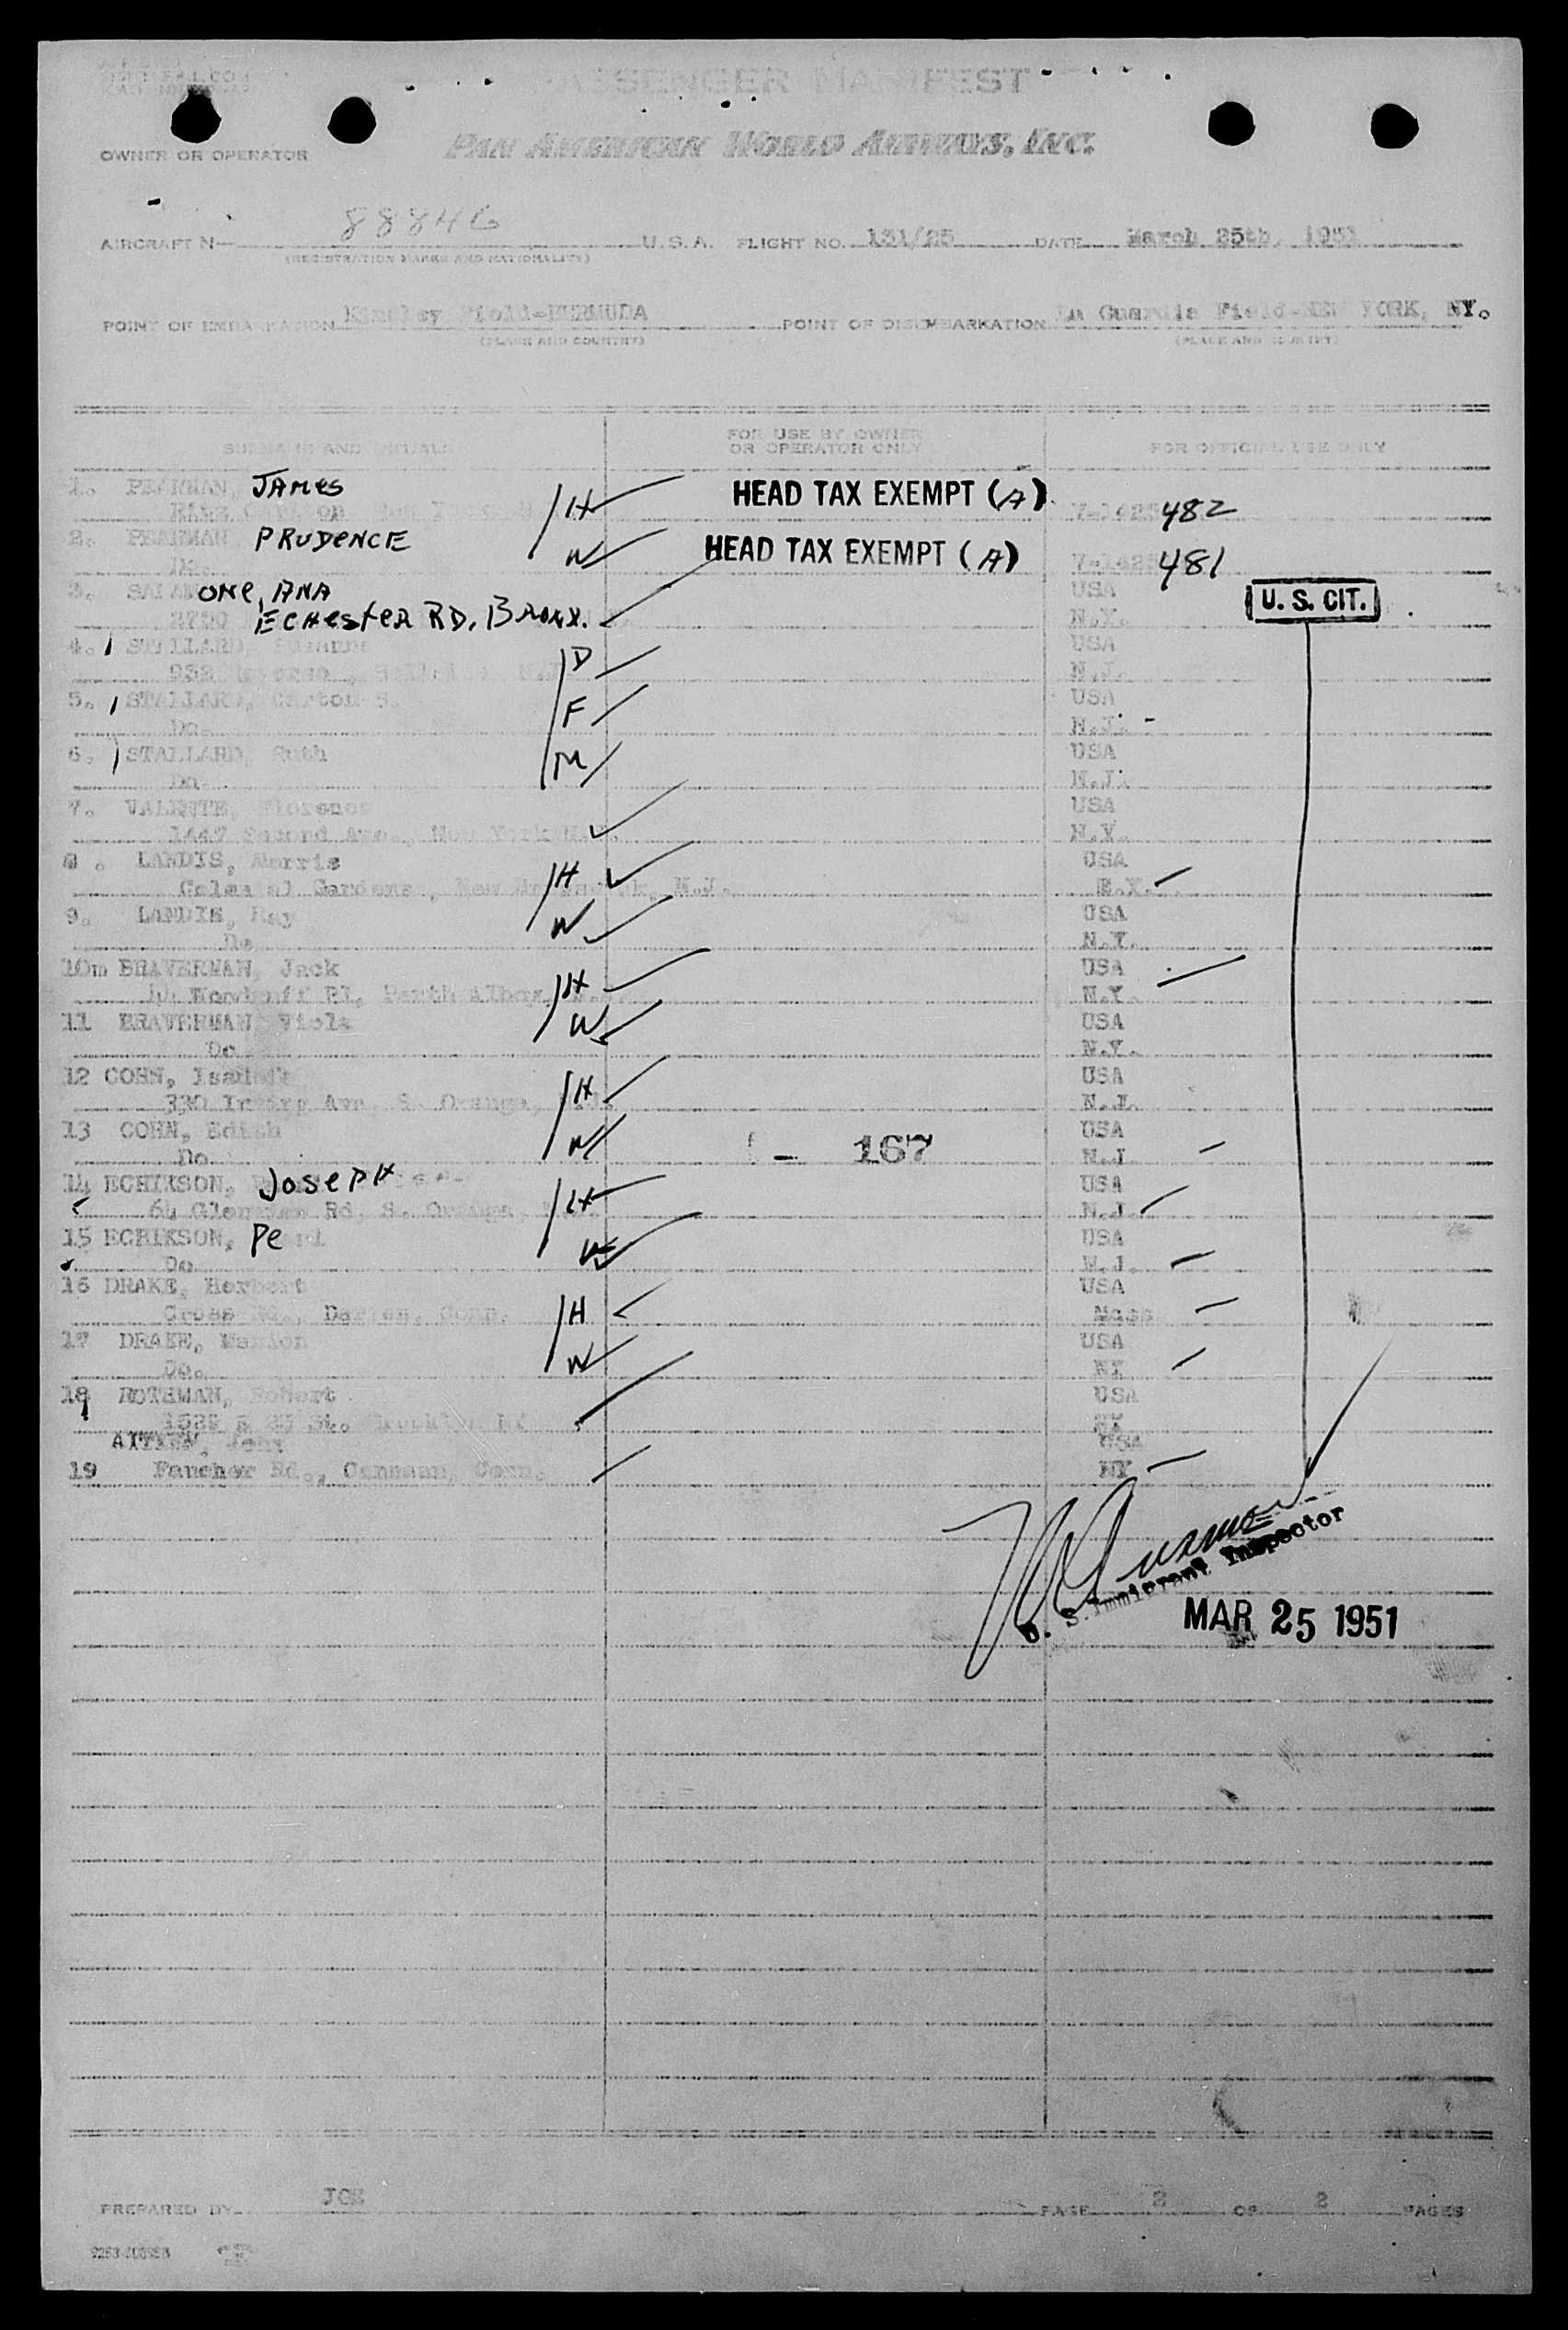 PASSENGER MANIFEST
OWNER OR OPERATOR
PAN AMERICAN WORLD AIRWAYS, INC.
AIRCRAFT N— 88846 U.S.A. FLIGHT NO. 131/25 DATE March 25th, 1951
(REGISTRATION MARKS AND NATIONALITY)
POINT OF EMBARKATION Kindley Field-BERMUDA POINT OF DISEMBARKATION La Guardia Field-NEW YORK, NY.
(PLACE AND COUNTRY) (PLACE AND COUNTRY)
SURNAME AND INITIALS FOR USE BY OWNER OR OPERATOR ONLY FOR OFFICIAL USE ONLY
1. PEARMAN, JAMES H HEAD TAX EXEMPT (A)
482
2. PEARMAN PRUDENCE W HEAD TAX EXEMPT (A)
Do. 481
3. ONE, ANA USA U. S. CIT.
ECHESTER RD, BRONX. N.Y.
4. STALLARD, D USA
N.J.
5. STALLARD, Carton S. F USA
Do. N.J.
6. STALLARD, Ruth M USA
Do. N.J.
7. VALENTE, Florence USA
1447 Second Ave., New York N.Y. N.Y.
8. LANDIS, Morris H USA
Colonial Gardens, New Brunswick, N.J. N.Y.
9. LANDIS, Ray W USA
Do N.Y.
10m BRAVERMAN, Jack H USA
Perth Amboy, N.Y.
11 BRAVERMAN, Viola W USA
Do N.Y.
12 COHN, H USA
330 Irving Ave, S. Orange, N.J.
13 COHN, Edith W USA
Do - 167 N.J.
14 ECHIKSON, JOSEPH H USA
64 Glenview Rd, S. Orange, N.J.
15 ECHIKSON, Pe W USA
Do N.J.
16 DRAKE, Herbert H USA
Cross Rd., Darien, Conn. Mass
17 DRAKE, Marion W USA
Do. NY
18 ROTHMAN, Robert USA
St. Brooklyn NY NY
AITKEN, John USA
19 Fancher Rd., Cannaan, Conn. NY
U. S. Immigrant Inspector
MAR 25 1951
PREPARED BY JGM PAGE 2 OF 2 PAGES